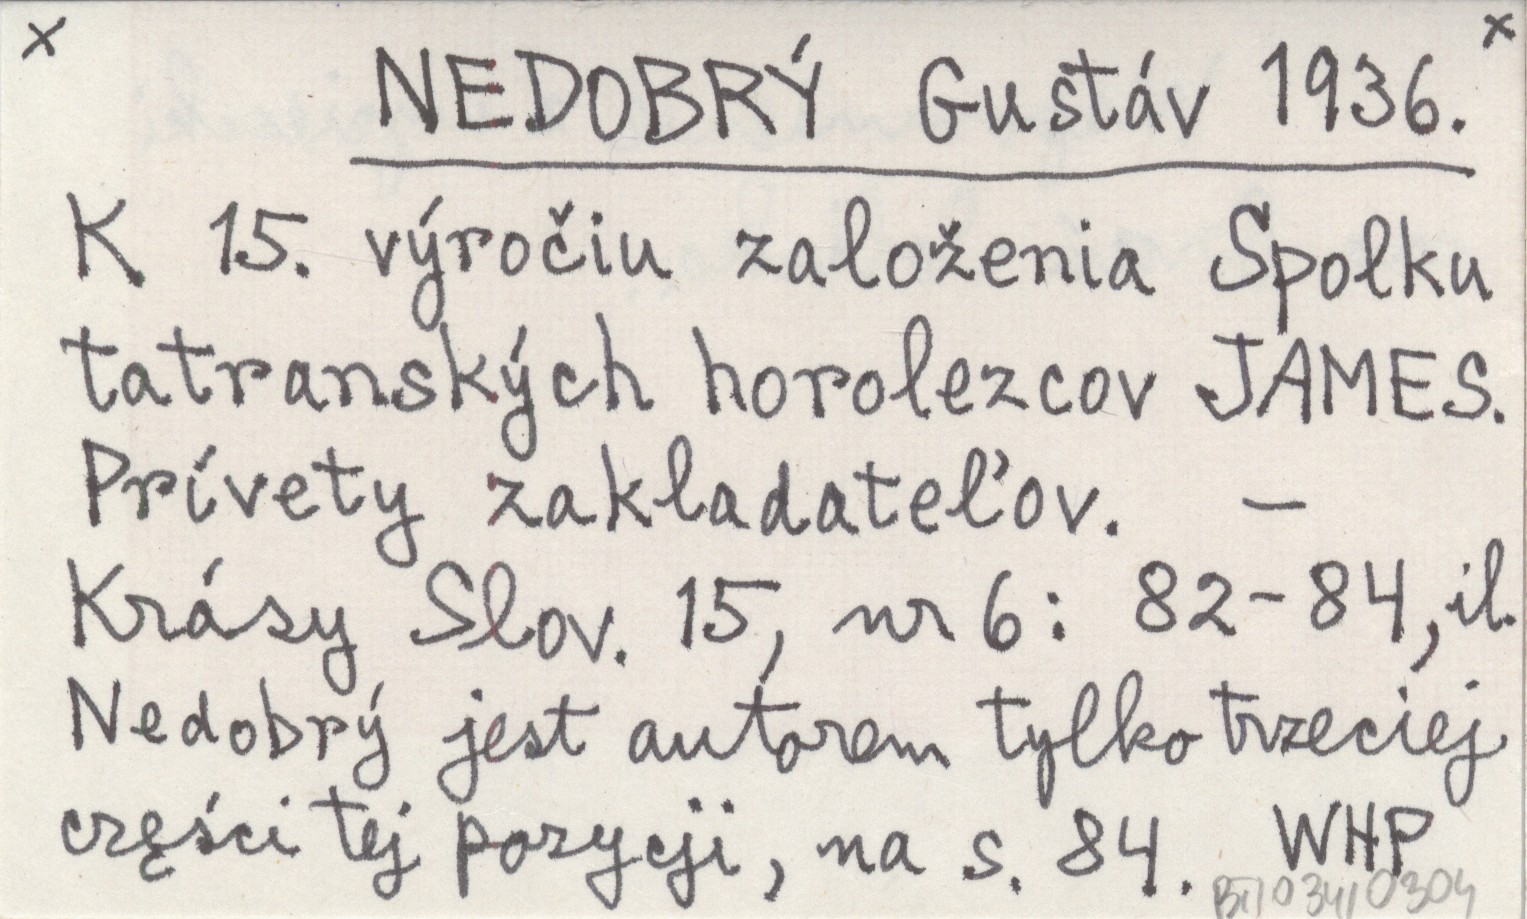 x x
NEDOBRÝ Gustáv 1936.
K 15. výročiu založenia Spolku
tatranských horolezcov JAMES.
Prívety zakladateľov. —
Krásy Slov. 15, nr 6: 82-84, il.
Nedobrý jest autorem tylko trzeciej
części tej pozycji, na s. 84. WHP